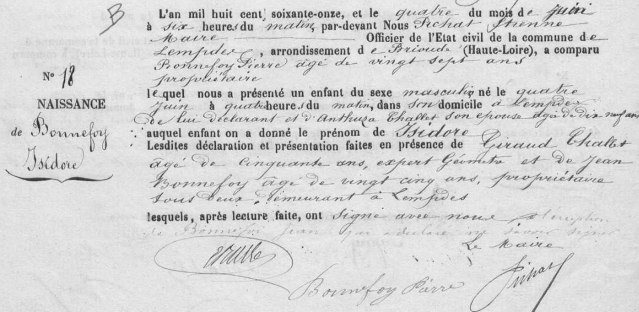 B
N° 18
NAISSANCE
de Bonnefoy
Isidore
L'an mil huit cent soixante-onze, et le quatre du mois de juin
à six heures du matin par-devant Nous Pichat Etienne
Maire Officier de l'Etat civil de la commune de
Lempdes, arrondissement de Brioude (Haute-Loire), a comparu
Bonnefoy Pierre âgé de vingt sept ans
propriétaire
lequel nous a présenté un enfant du sexe masculin né le quatre
juin à quatre heures du matin, dans son domicile à Lempdes
De lui déclarant et d'Anthusa Challet son épouse âgée de dix neuf ans
auquel enfant on a donné le prénom de Isidore
Lesdites déclaration et présentation faites en présence de Giraud Challet
âgé de cinquante ans, expert Géomètre et de Jean
Bonnefoy âgé de vingt cinq ans, propriétaire
tous deux demeurant à Lempdes
lesquels, après lecture faite, ont signé avec nous à l'exception
de Bonnefoy Jean qui a déclaré ne savoir signer
Le Maire
Bonnefoy Pierre
Pichat